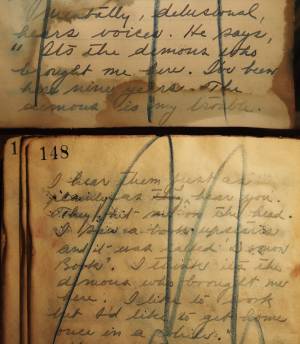 mentally, delusional,
hears voices. He says,
"Its the demons who
brought me here. I've been
here nine years. The
demons is my trouble.
1 148
I hear them just as
as hear you.
They hit me on the head.
I saw a book upstairs
and it was called Demon
Book". I think its the
demons who brought me
here. I like to work
but I'd like to get home
once in a while."